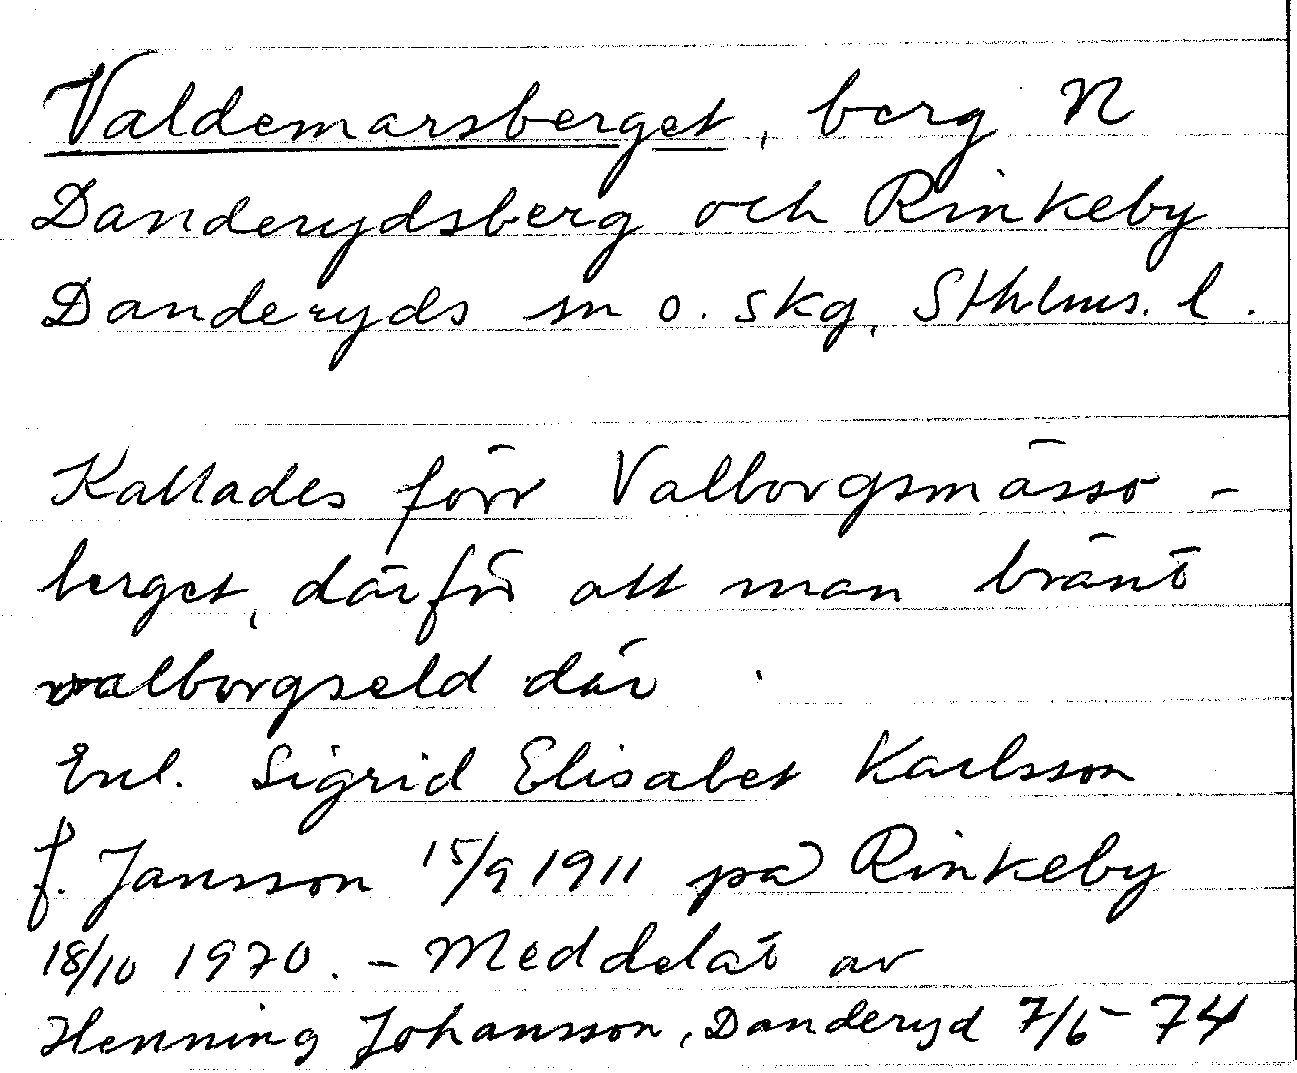 Valdemarsberget, berg N
Danderydsberg och Rinkeby
Danderyds sn o. skg, Sthlms. l.
Kallades förr Valborgsmässo-
berget, därför att man bränt
valborgseld där.
Enl. Sigrid Elisabet Karlsson
f. Jansson 15/9 1911 på Rinkeby
18/10 1970. - Meddelat av
Henning Johansson, Danderyd 7/5-74